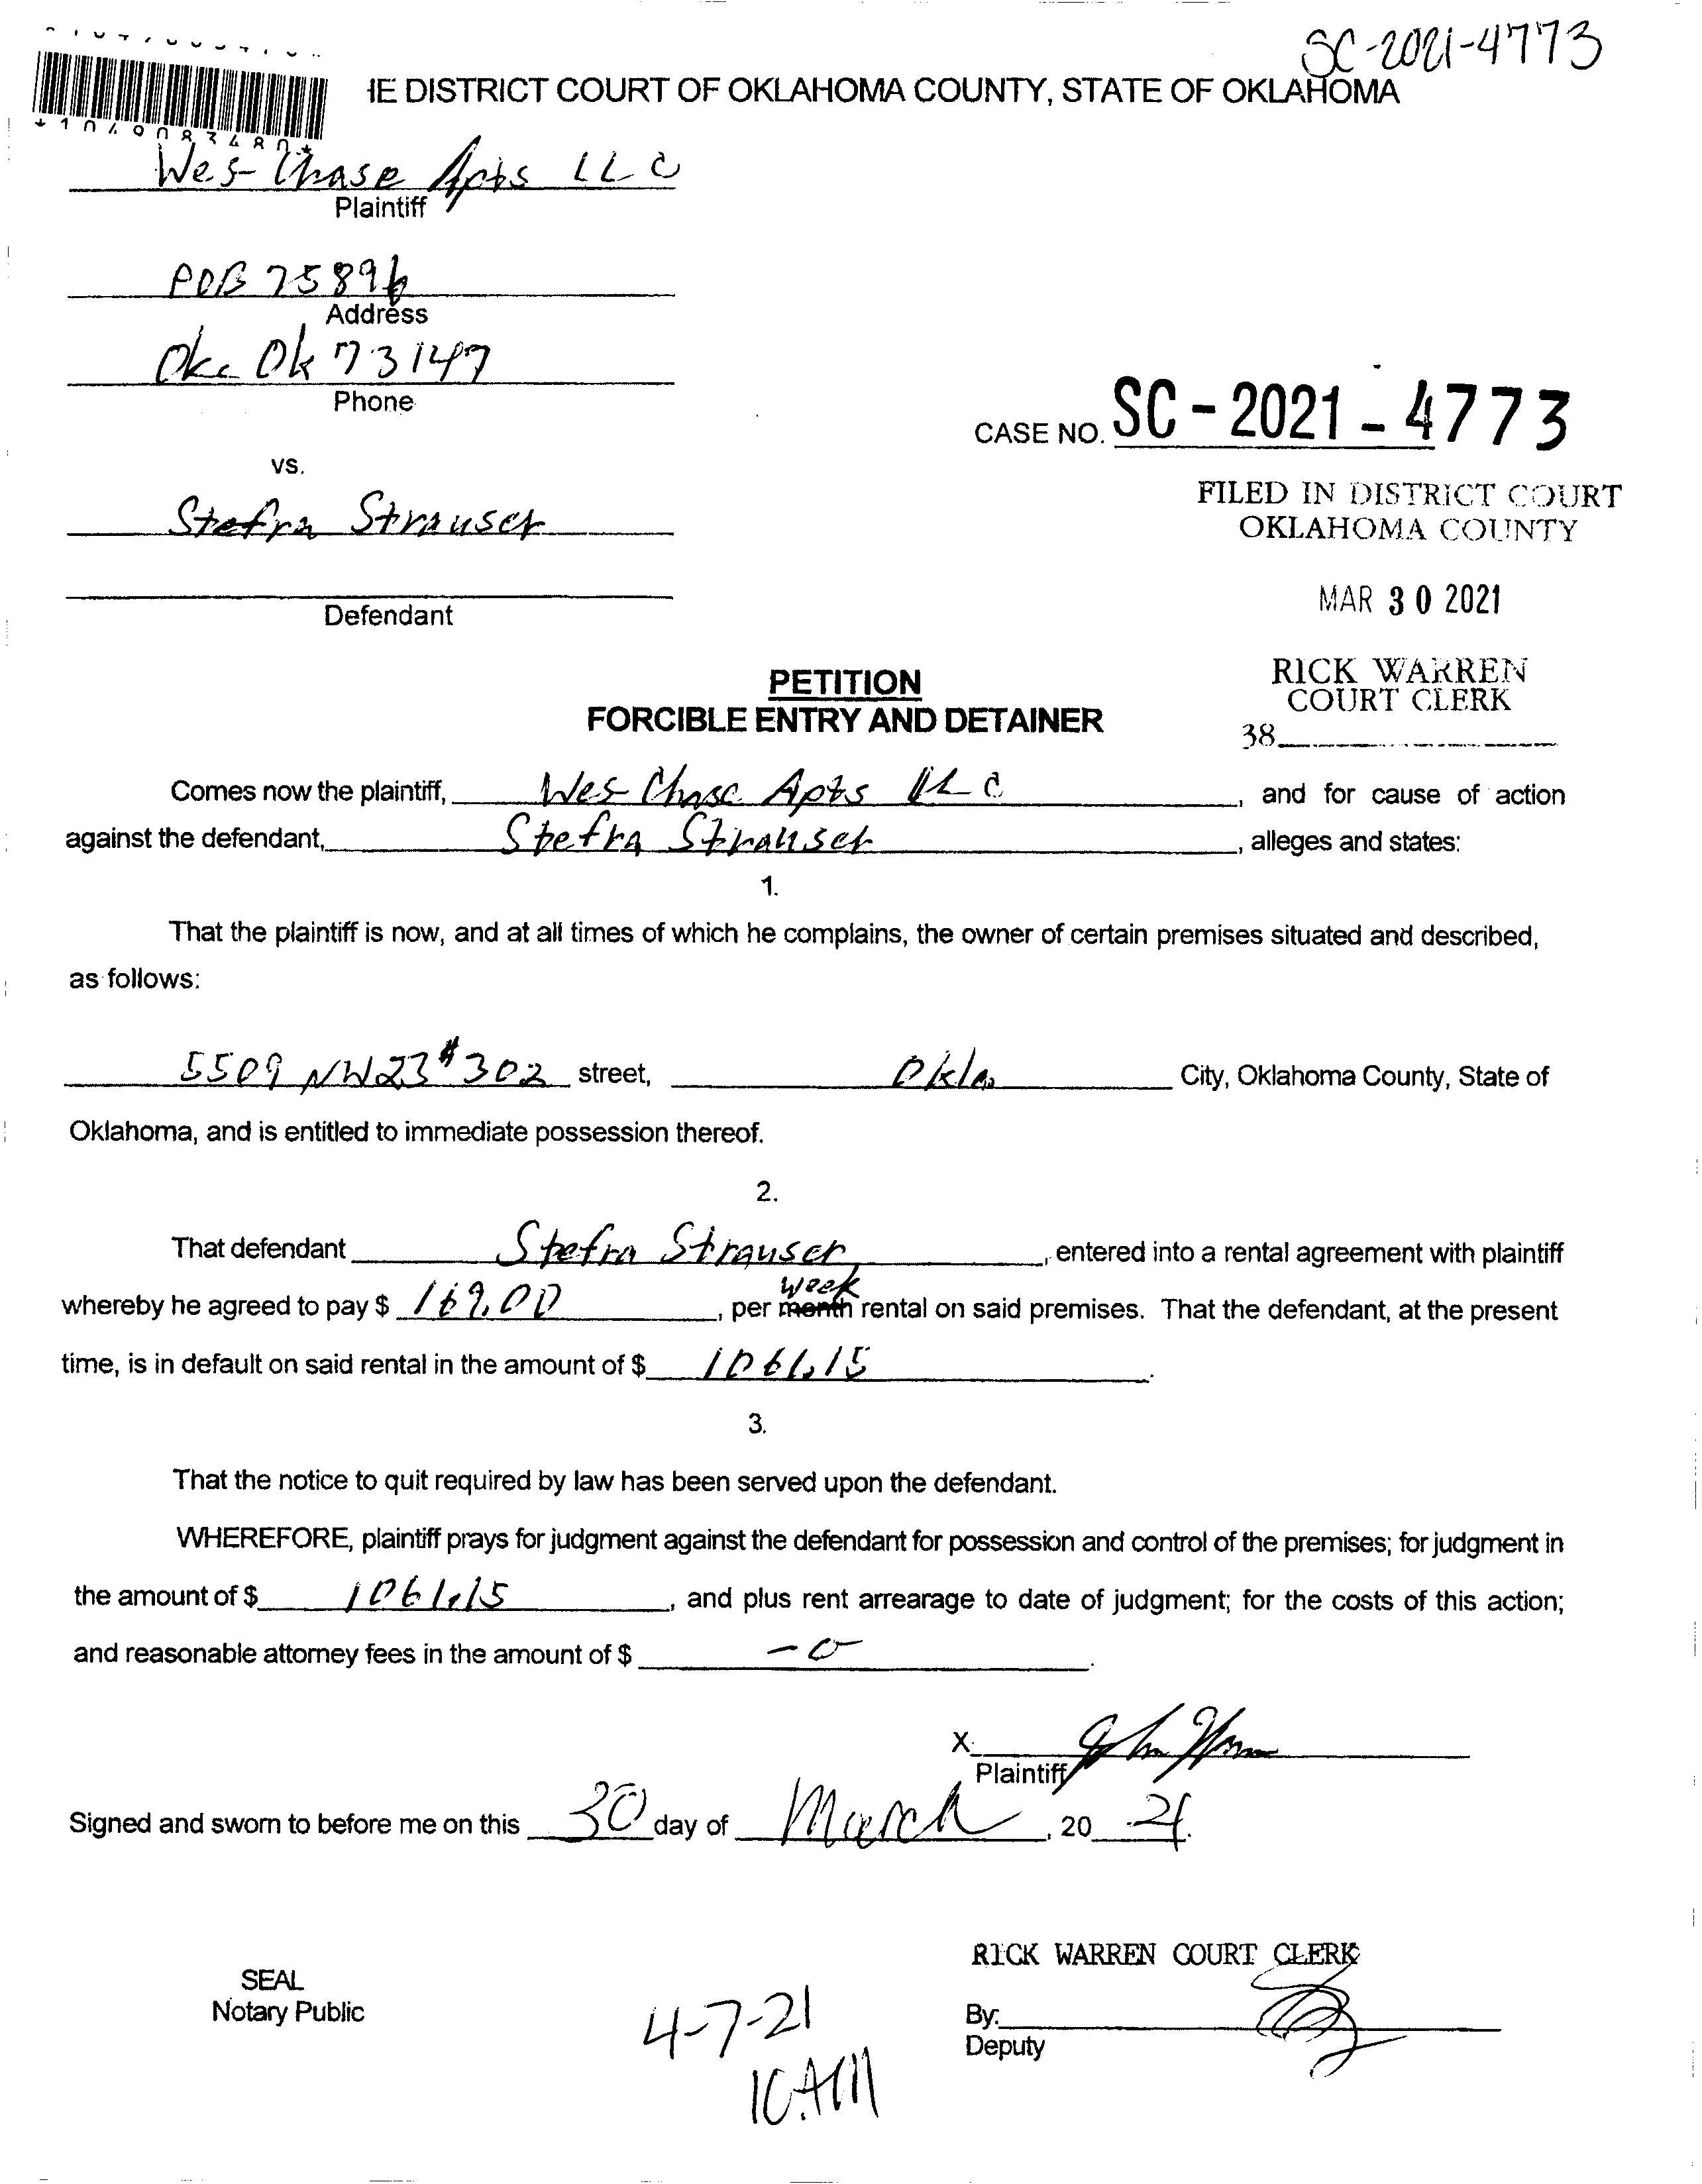 SC-2021-4773
IE DISTRICT COURT OF OKLAHOMA COUNTY, STATE OF OKLAHOMA
*1049083480*
Wes Chase Apts LLC
Plaintiff
POB 75896
Address
Okc Ok 73147
Phone
CASE NO. SC-2021-4773
vs.
FILED IN DISTRICT COURT
OKLAHOMA COUNTY
Stefra Strauser
MAR 30 2021
Defendant
RICK WARREN
COURT CLERK
38
PETITION
FORCIBLE ENTRY AND DETAINER
Comes now the plaintiff, Wes Chase Apts LLC, and for cause of action
against the defendant, Stefra Strauser, alleges and states:
1.
That the plaintiff is now, and at all times of which he complains, the owner of certain premises situated and described,
as follows:
5509 NW23 #302 street, Okla City, Oklahoma County, State of
Oklahoma, and is entitled to immediate possession thereof.
2.
That defendant Stefra Strauser, entered into a rental agreement with plaintiff
week
whereby he agreed to pay $ 169.00, per month rental on said premises. That the defendant, at the present
time, is in default on said rental in the amount of $ 1061.15.
3.
That the notice to quit required by law has been served upon the defendant.
WHEREFORE, plaintiff prays for judgment against the defendant for possession and control of the premises; for judgment in
the amount of $ 1061.15, and plus rent arrearage to date of judgment; for the costs of this action;
and reasonable attorney fees in the amount of $ -0-.
X
Plaintiff
Signed and sworn to before me on this 30 day of March, 20 21.
RICK WARREN COURT CLERK
SEAL
Notary Public
By:
Deputy
4-7-21
10AM